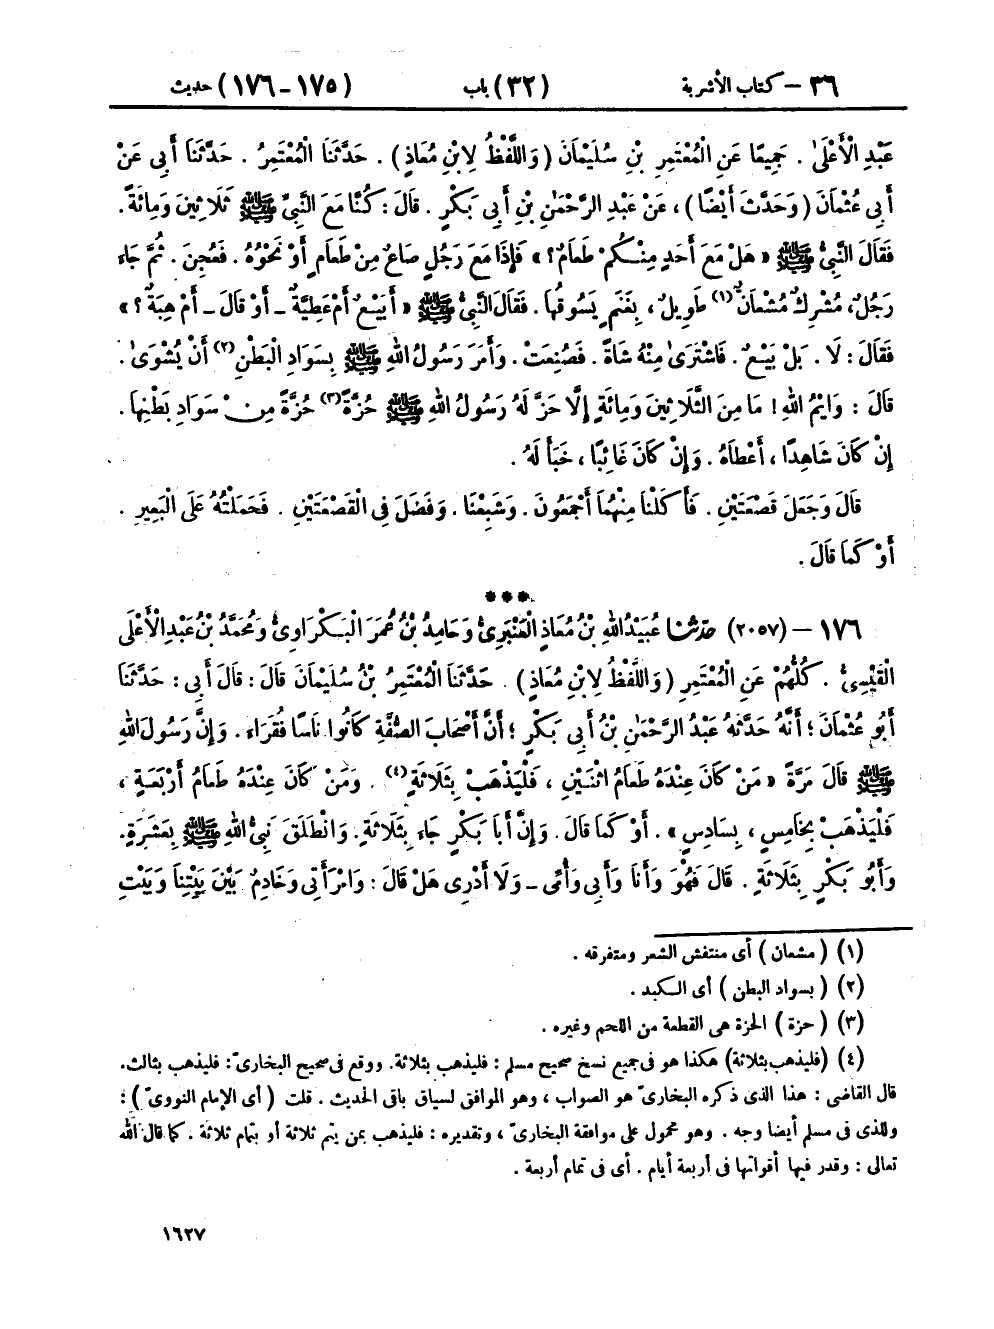 ٣٦ – كتاب الأشربة (٣٢) باب (١٧٥-١٧٦) حديث
عَبْدِ الْأَعْلَىٰ . جَمِيعًا عَنِ الْمُعْتَمِرِ بْنِ سُلَيْمَانَ ( وَاللَّفْظُ لِابْنِ مُعَاذٍ ) . حَدَّثَنَا الْمُعْتَمِرُ . حَدَّثَنَا أَبِي عَنْ
أَبِي عُثْمَانَ ( وَحَدَّثَ أَيْضًا ) ، عَنْ عَبْدِ الرَّحْمَٰنِ بْنِ أَبِي بَكْرٍ . قَالَ : كُنَّا مَعَ النَّبِيِّ ﷺ ثَلَاثِينَ وَمِائَةً .
فَقَالَ النَّبِيُّ ﷺ « هَلْ مَعَ أَحَدٍ مِنْكُمْ طَعَامٌ ؟ » فَإِذَا مَعَ رَجُلٍ صَاعٌ مِنْ طَعَامٍ أَوْ نَحْوُهُ . فَعُجِنَ . ثُمَّ جَاءَ
رَجُلٌ ، مُشْرِكٌ مُشْعَانٌّ(١) طَوِيلٌ ، بِغَنَمٍ يَسُوقُهَا . فَقَالَ النَّبِيُّ ﷺ « أَبَيْعٌ أَمْ عَطِيَّةٌ – أَوْ قَالَ – أَمْ هِبَةٌ ؟ »
فَقَالَ : لَا . بَلْ بَيْعٌ . فَاشْتَرَىٰ مِنْهُ شَاةً . فَصُنِعَتْ . وَأَمَرَ رَسُولُ اللهِ ﷺ بِسَوَادِ الْبَطْنِ(٢) أَنْ يُشْوَىٰ .
قَالَ : وَايْمُ اللهِ ! مَا مِنَ الثَّلَاثِينَ وَمِائَةٍ إِلَّا حَزَّ لَهُ رَسُولُ اللهِ ﷺ حُزَّةً(٣) حُزَّةً مِنْ سَوَادِ بَطْنِهَا .
إِنْ كَانَ شَاهِدًا ، أَعْطَاهُ . وَإِنْ كَانَ غَائِبًا ، خَبَأَ لَهُ .
قَالَ وَجَعَلَ قَصْعَتَيْنِ . فَأَكَلْنَا مِنْهُمَا أَجْمَعُونَ . وَشَبِعْنَا . وَفَضَلَ فِي الْقَصْعَتَيْنِ . فَحَمَلْتُهُ عَلَى الْبَعِيرِ .
أَوْ كَمَا قَالَ .
***
١٧٦ – (٢٠٥٧) حَدَّثَنَا عُبَيْدُ اللهِ بْنُ مُعَاذٍ الْعَنْبَرِيُّ وَحَامِدُ بْنُ عُمَرَ الْبَكْرَاوِيُّ وَمُحَمَّدُ بْنُ عَبْدِ الْأَعْلَى
الْقَيْسِيُّ . كُلُّهُمْ عَنِ الْمُعْتَمِرِ ( وَاللَّفْظُ لِابْنِ مُعَاذٍ ) . حَدَّثَنَا الْمُعْتَمِرُ بْنُ سُلَيْمَانَ قَالَ : قَالَ أَبِي : حَدَّثَنَا
أَبُو عُثْمَانَ ؛ أَنَّهُ حَدَّثَهُ عَبْدُ الرَّحْمَٰنِ بْنُ أَبِي بَكْرٍ ؛ أَنَّ أَصْحَابَ الصُّفَّةِ كَانُوا نَاسًا فُقَرَاءَ . وَإِنَّ رَسُولَ اللهِ
ﷺ قَالَ مَرَّةً « مَنْ كَانَ عِنْدَهُ طَعَامُ اثْنَيْنِ ، فَلْيَذْهَبْ بِثَلَاثَةٍ(٤) . وَمَنْ كَانَ عِنْدَهُ طَعَامُ أَرْبَعَةٍ ،
فَلْيَذْهَبْ بِخَامِسٍ ، بِسَادِسٍ » . أَوْ كَمَا قَالَ . وَإِنَّ أَبَا بَكْرٍ جَاءَ بِثَلَاثَةٍ . وَانْطَلَقَ نَبِيُّ اللهِ ﷺ بِعَشَرَةٍ .
وَأَبُو بَكْرٍ بِثَلَاثَةٍ . قَالَ فَهُوَ وَأَنَا وَأَبِي وَأُمِّي – وَلَا أَدْرِي هَلْ قَالَ : وَامْرَأَتِي وَخَادِمٌ بَيْنَ بَيْتِنَا وَبَيْتِ
(١) ( مشعان ) أى منتفش الشعر ومتفرقه .
(٢) ( بسواد البطن ) أى الكبد .
(٣) ( حزة ) الحزة هى القطعة من اللحم وغيره .
(٤) (فليذهب بثلاثة) هكذا هو فى جميع نسخ صحيح مسلم : فليذهب بثلاثة. ووقع فى صحيح البخارىّ : فليذهب بثالث.
قال القاضى : هذا الذى ذكره البخارىّ هو الصواب ، وهو الموافق لسياق باقى الحديث . قلت ( أى الإمام النووىّ ) :
وللذى فى مسلم أيضا وجه . وهو محمول على موافقة البخارىّ ، وتقديره : فليذهب بمن يتم ثلاثة أو بتمام ثلاثة . كما قال الله
تعالى : وقدر فيها أقواتها فى أربعة أيام . أى فى تمام أربعة .
١٦٢٧